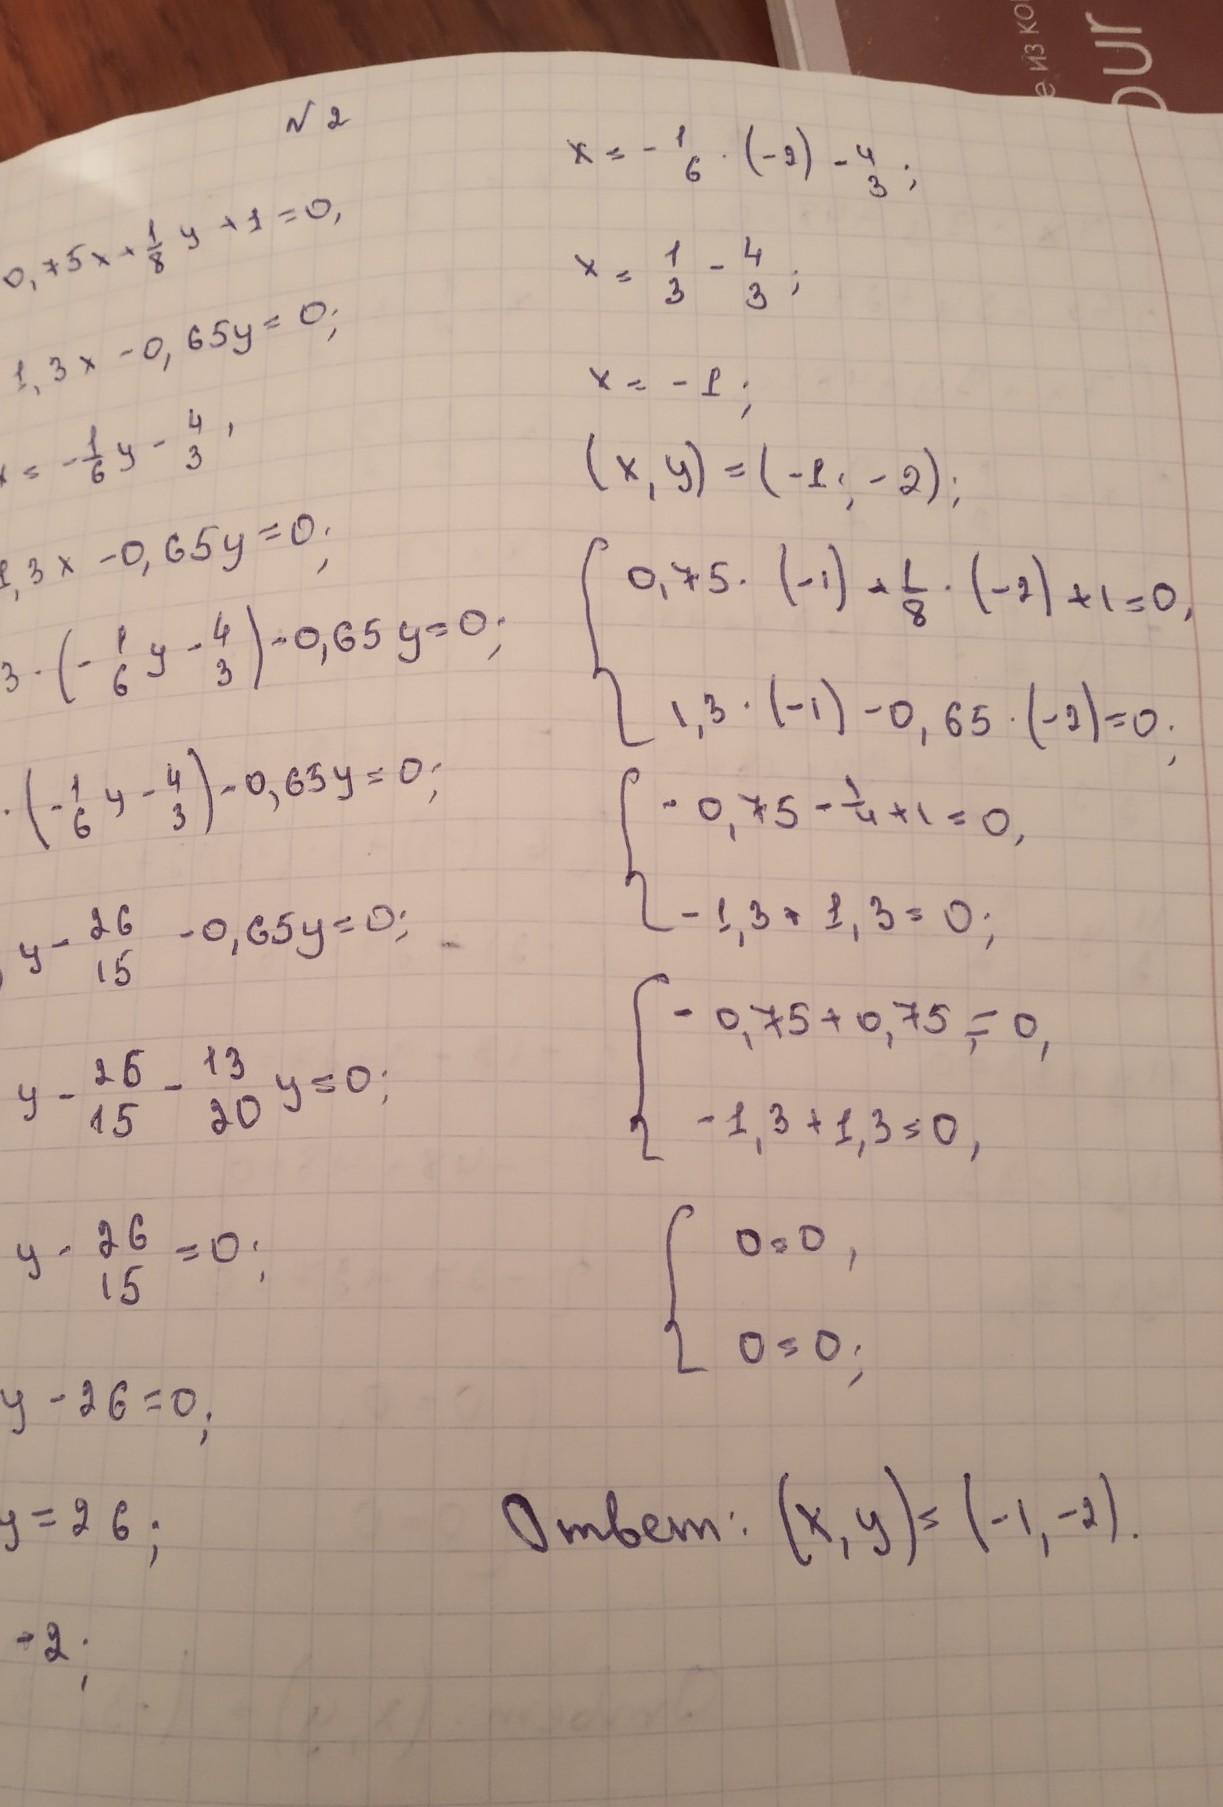 №2
0,75x+1/8y+1=0,
1,3x-0,65y=0;
x=-1/6y-4/3,
1,3x-0,65y=0;
3·(-1/6y-4/3)-0,65y=0;
·(-1/6y-4/3)-0,65y=0;
y-26/15-0,65y=0;
y-26/15-13/20y=0;
y-26/15=0;
y-26=0;
y=26;
-2;
x=-1/6·(-2)-4/3;
x=1/3-4/3;
x=-1;
(x,y)=(-1;-2);
0,75·(-1)+1/8·(-2)+1=0,
1,3·(-1)-0,65·(-2)=0;
-0,75-1/4+1=0,
-1,3+1,3=0;
-0,75+0,75=0,
-1,3+1,3=0,
0=0,
0=0;
Ответ: (x,y)=(-1,-2).
е из ко
our